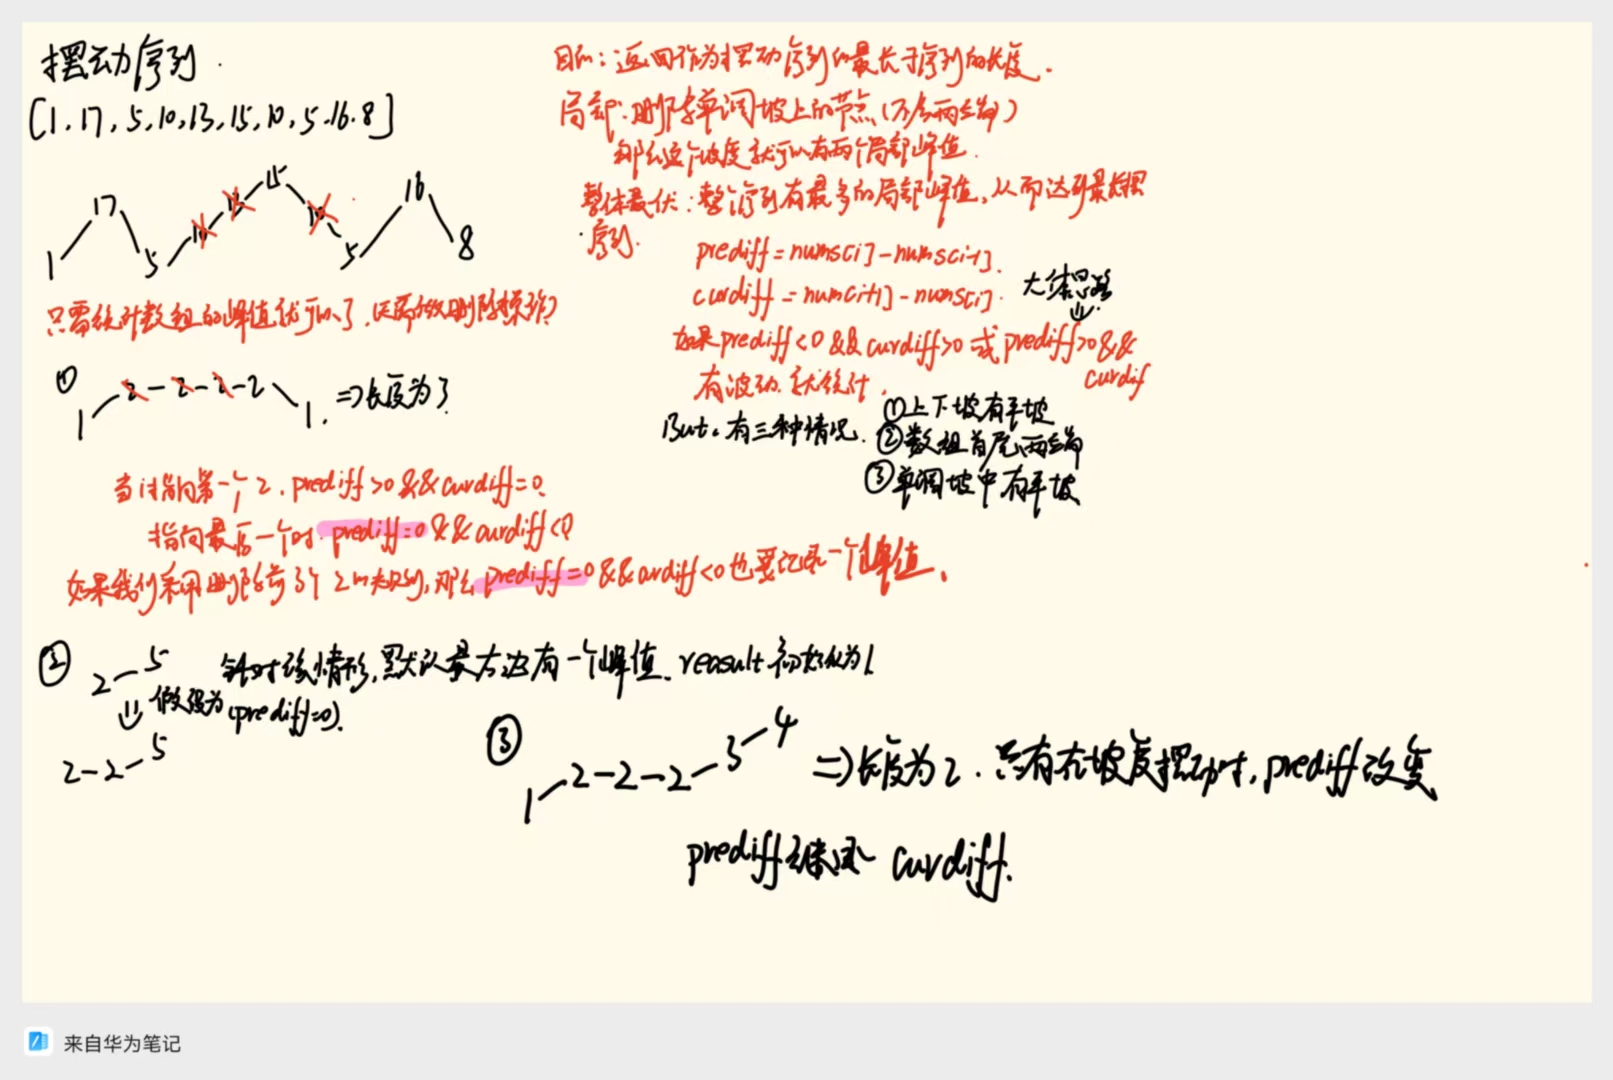 摆动序列.
[1, 17, 5, 10, 13, 15, 10, 5, 16, 8]
17 15 16
13
10 10
1 5 5 8
只需统计数组的峰值就可以了.(无需做删除操作)
目的:返回作为摆动序列的最长子序列的长度.
局部:删除单调坡上的节点(不含两端)
那么这个坡度就可以有两个局部峰值.
整体最优:整个序列有最多的局部峰值,从而达到最长摆
序列.
prediff = nums[i] - nums[i-1].
curdiff = nums[i+1] - nums[i].
大体思路
⇓.
如果prediff<0 && curdiff>0 或 prediff>0 &&
curdif
有波动.就统计.
But.有三种情况.
①上下坡有平坡
②数组首尾两端
③单调坡中有平坡
①
1 2-2-2-2 1. ⇒长度为3.
当i指向第一个2, prediff>0 && curdiff=0.
指向最后一个时. prediff=0 && curdiff<0
如果我们采用删除前3个2的规则,那么prediff=0 && curdiff<0也要记录一个峰值.
② 2 5 针对该情形,默认最右边有一个峰值. reasult初始化为1.
⇓ 假设为(prediff=0).
2-2-5
③
1 2-2-2 3 4 ⇒长度为2. 只有在坡度摆动时, prediff改变
prediff curdiff.